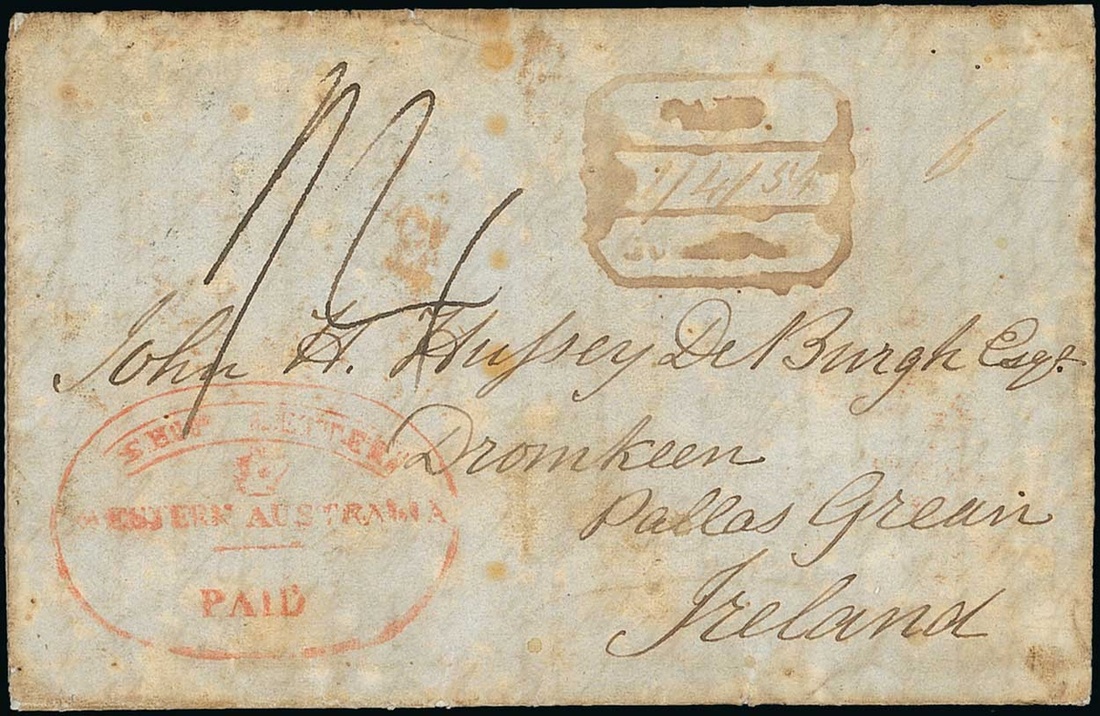 1/4/54
6
John H. Hussey De Burgh Esqr.
Dromkeen
Pallas Grean
Ireland
SHIP LETTER
WESTERN AUSTRALIA
PAID